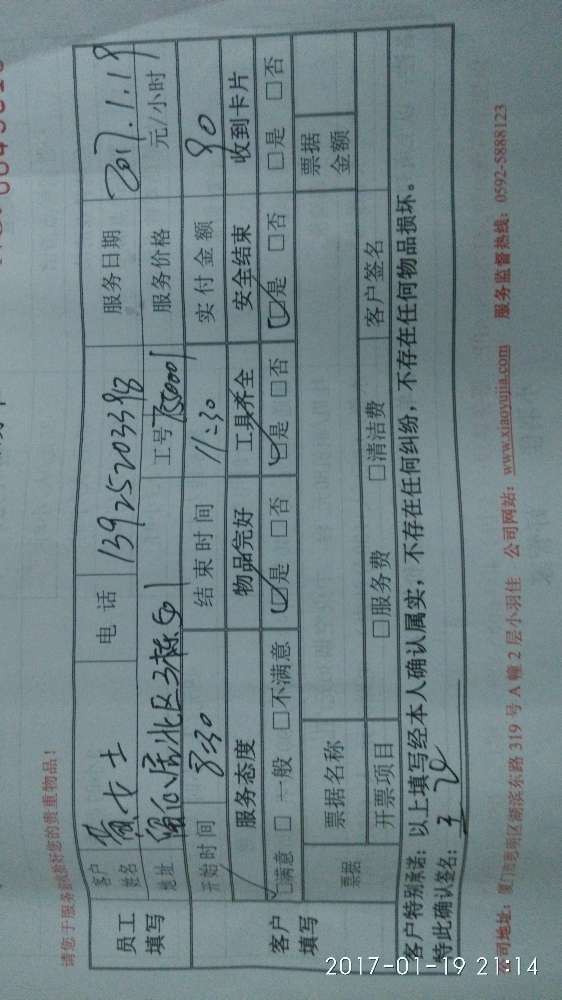 请您于服务前收拾好您的贵重物品！
员工填写 客户姓名 黄女士 电话 13925203398 服务日期 2017.1.19
地址 工号 服务价格 元/小时
开始时间 8:30 结束时间 11:30 实付金额 90
客户填写 服务态度 物品完好 工具齐全 安全结束 收到卡片
□满意 □一般 □不满意 □是 □否 □是 □否 □是 □否 □是 □否
票据 票据名称 票据金额
开票项目 □服务费 □清洁费 客户签名
客户特别承诺：以上填写经本人确认属实，不存在任何纠纷，不存在任何物品损坏。
特此确认签名：
公司地址：厦门市思明区湖滨东路 319 号 A 幢 2 层小羽佳 公司网站：www.xiaoyujia.com 服务监督热线：0592-5888123
2017-01-19 21:14